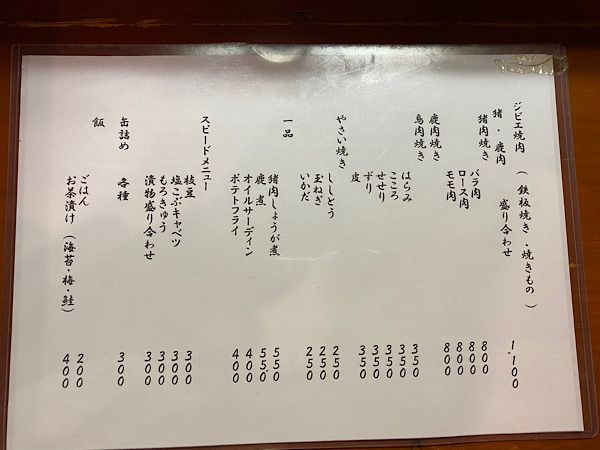 ジビエ焼肉 （ 鉄板焼き ・焼きもの ）
猪・鹿肉 盛り合わせ 1.100
猪肉焼き
バラ肉 800
ロース肉 800
モモ肉 800
鹿肉焼き 800
鳥肉焼き
はらみ 350
こころ 350
せせり 350
ずり 350
皮 350
やさい焼き
ししとう 250
玉ねぎ 250
いかだ 250
一品
猪肉しょうが煮 550
鹿煮 550
オイルサーディン 400
ポテトフライ 400
スピードメニュー
枝豆 300
塩こぶキャベツ 300
もろきゅう 300
漬物盛り合わせ 300
缶詰め 各種 300
飯
ごはん 200
お茶漬け（海苔・梅・鮭） 400